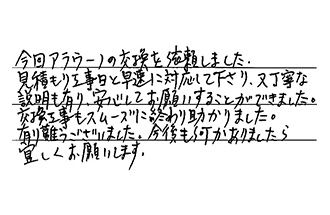 今回アラウーノの交換を依頼しました.
見積もり工事日と早速に対応して下さり、又丁寧な
説明も有り、安心してお願いすることができました。
交換工事もスムーズに終わり助かりました。
有り難うございました。今後も何かありましたら
宜しくお願いします.